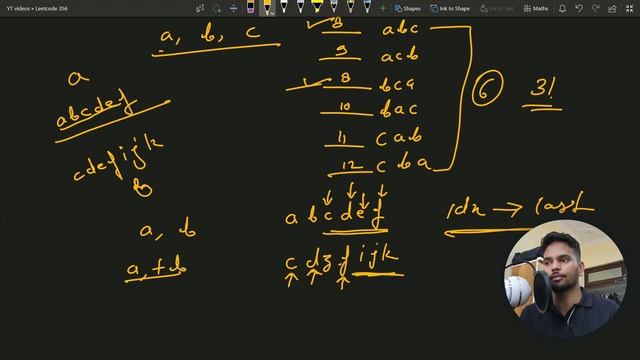 YT videos » Leetcode 356
Shapes
Ink to Shape
Ink to Math
a, b, c
8 abc
9 acb
8 bca
10 bac
11 cab
12 cba
6 3!
a
abcdef
cdefijk
a, b
a, + b
abcdef
idx → last
cdzfijk